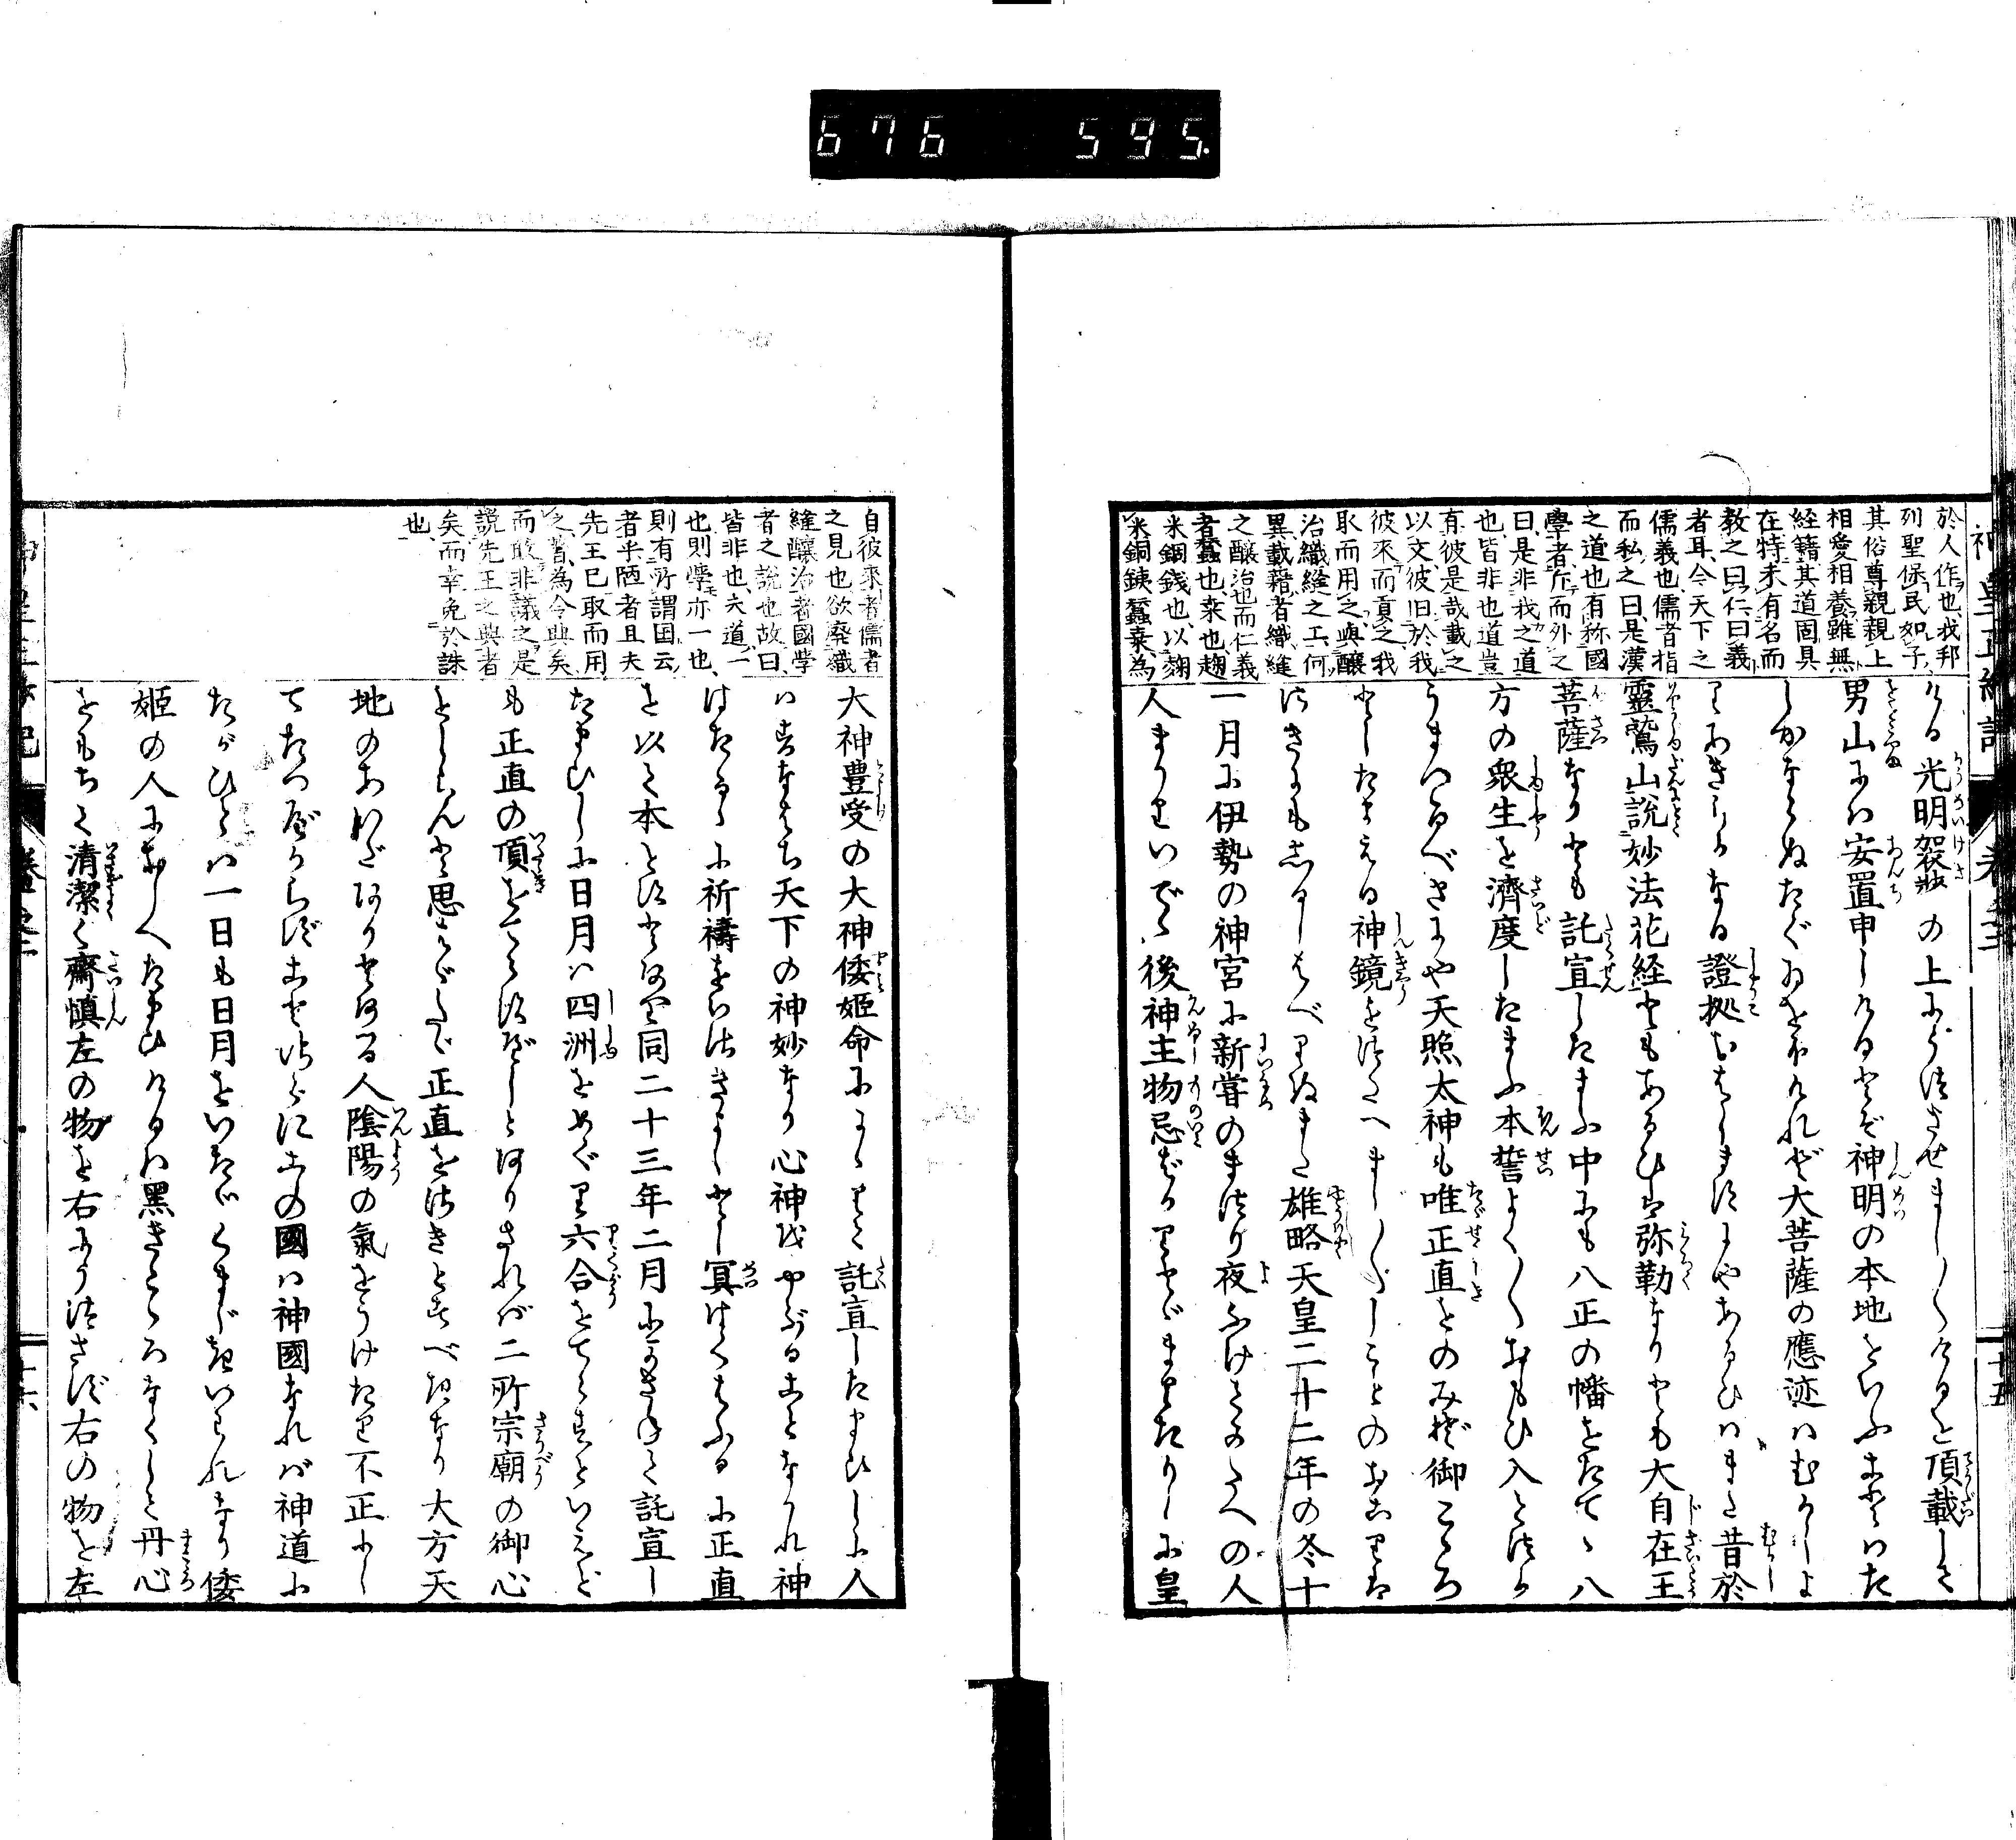 於人作也我邦
列聖保民如子
其俗尊親親上
相愛相養雖無
経籍其道固具
在特未有名而
教之曰仁曰義
者耳今天下之
儒義也儒者指
而私之曰是漢
之道也有称國
學者斥而外之
曰是非我之道
也皆非也道豈
有彼是哉載之
以文彼旧於我
彼來而貢之我
取而用之與釀
治織縫之工何
異載藉者織縫
之釀治也而仁義
者蠶也桒也麹
米銅銭也以麹
米銅銕蠶桒為
ける光明袈裟の上にうつさせまし〳〵けるを頂載して
男山には安置申しけるとぞ神明の本地をいふことはた
しかならぬたぐゐをおほけれど大菩薩の應迹はむかしよ
りあきらかなる證拠おはしますにやあるひはまた昔於
靈鷲山説妙法花経ともあるひは弥勒なりとも大自在王
菩薩なりとも託宣したまふ中にも八正の幡をたてゝ八
方の衆生を濟度したまふ本誓よく〳〵おもひ入てつか
うまつるべきにや天照太神も唯正直をのみぞ御こゝろ
としたまえる神鏡をつたへまし〳〵しことのおこりは
さきにもしるしはべりぬまた雄略天皇二十二年の冬十
一月に伊勢の神宮に新嘗のまつり夜ふけてかたへの人
人まかりいでゝ後神主物忌ばかりとゞまりたりしに皇
自彼來者儒者
之見也欲廢織
縫釀治者國学
者之説也故曰
皆非也夫道一
也則學亦一也
則有所謂国云
者乎陋者且夫
先王已取而用
之著為令典矣
而敢非議之是
謗先王之典者
矣而幸免於誅
也
大神豊受の大神倭姫命にかゝりて託宣したまひしに人
はすなはち天下の神妙なり心神をやぶることなかれ神
はたるゝに祈禱をもつてさきとし冥はくはふるに正直
を以て本とすとあり同二十三年二月にかさねて託宣し
たまひしに日月は四洲をめぐり六合をてらすといへど
も正直の頂をてらすべしとありされば二所宗廟の御心
をしらんと思はゞたゞ正直をさきとすべきなり大方天
地のあひだにありとある人陰陽の氣をうけたり不正にし
てたつべからずことさらにこの國は神國なれば神道に
たがひては一日も日月をいたゞくまじきいはれなり倭
姫の人におしへたまひけるは黒きこゝろなくして丹心
をもちて清潔く齋慎左の物を右にうつさず右の物を左